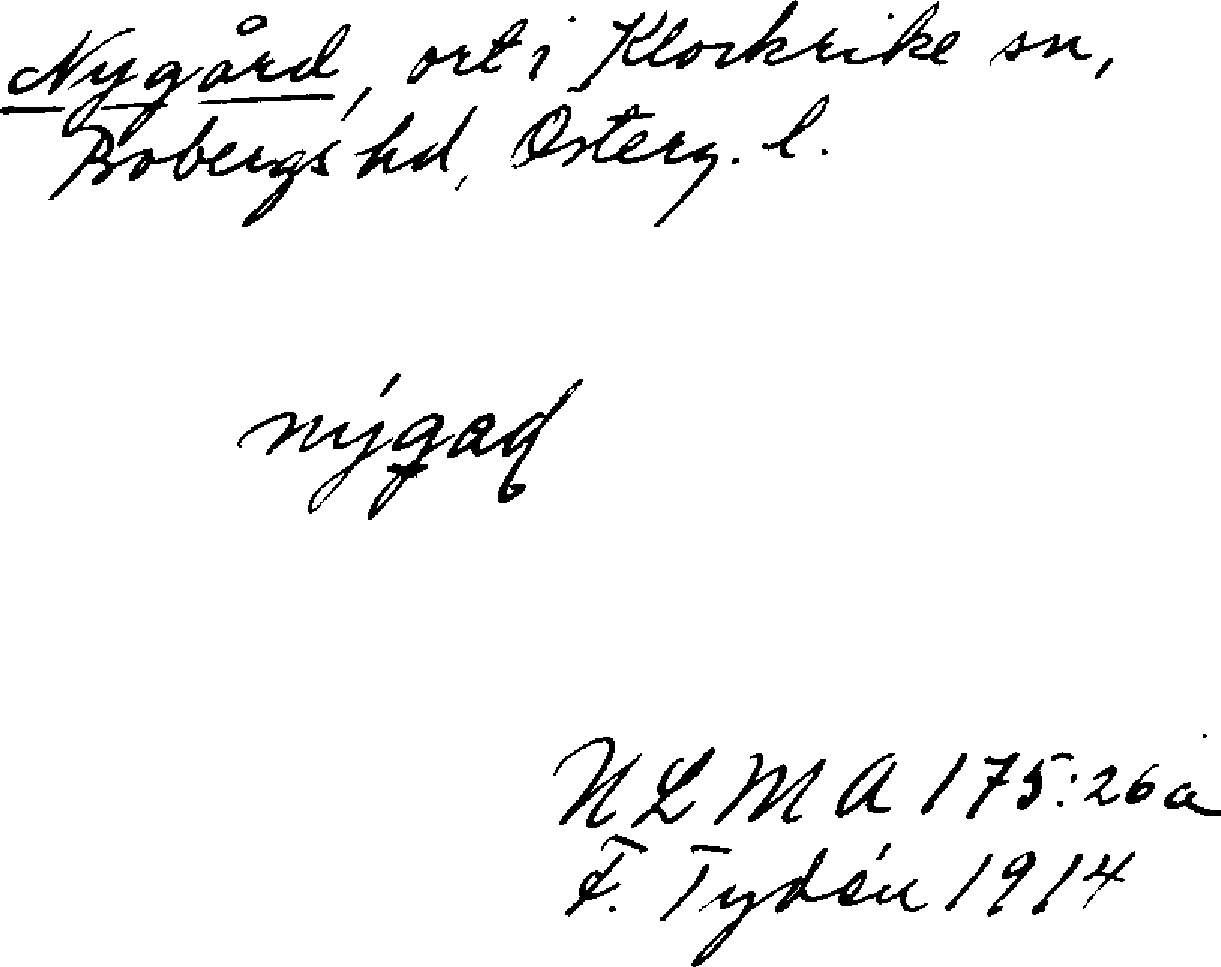 Nygård, ort i Klockrike sn,
Bobergs hd, Österg. l.
NLM A 175:26a
F. Tydén 1914